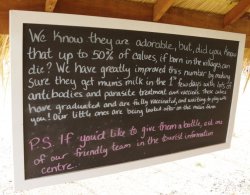 We Know they are adorable, but, did you Know
that up to 50% of calves, if born in the villages can
die? We have greatly improved this number by making
sure they get mum's milk in the 1st few days with lots of
antibiotics and parasite treatment and vaccines. These calves
have graduated and are fully vaccinated, and waiting to play with
you! Our little ones are being looked after on the main barn
P.S. If you'd like to give them a bottle, ask one
of our friendly team in the tourist information
centre..